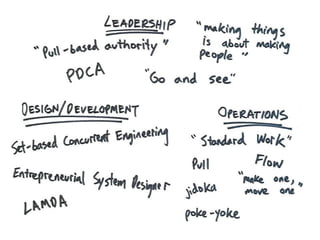 LEADERSHIP
"Pull-based authority"
"making things
is about making
people"
PDCA
"Go and see"
DESIGN/DEVELOPMENT
Set-based Concurrent Engineering
Entrepreneurial System Designer
LAMDA
OPERATIONS
"Standard Work"
Pull
Flow
jidoka
"make one,
move one"
poke-yoke